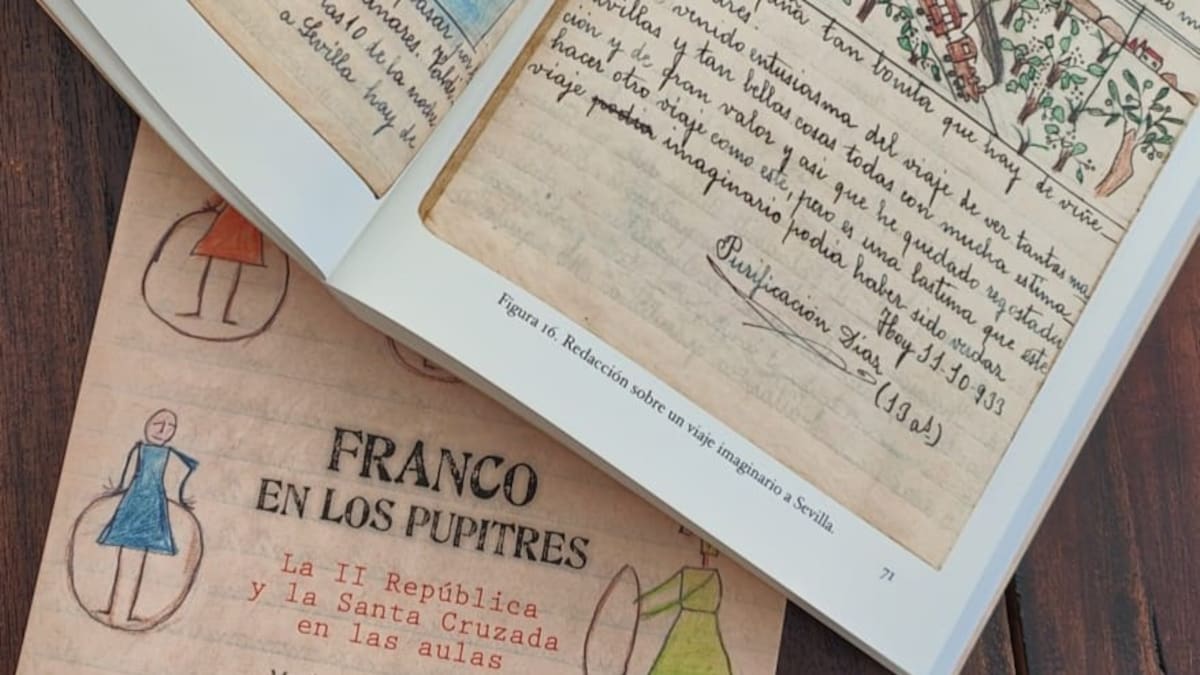 pasar por
las 10 de la
a Sevilla hay de
tan bonita que hay de viñe
venido entusiasma del viaje de ver tantas ma
villas y tan bellas cosas todas con mucha estima
ción y de gran valor y asi que he quedado
hacer otro viaje como este, pero es una lastima que este
viaje podia imaginario podia haber sido verdaz
Hoy 11-10-933
Purificación Díaz (13 as)
Figura 16. Redacción sobre un viaje imaginario a Sevilla.
71
FRANCO
EN LOS PUPITRES
La II República
y la Santa Cruzada
en las aulas